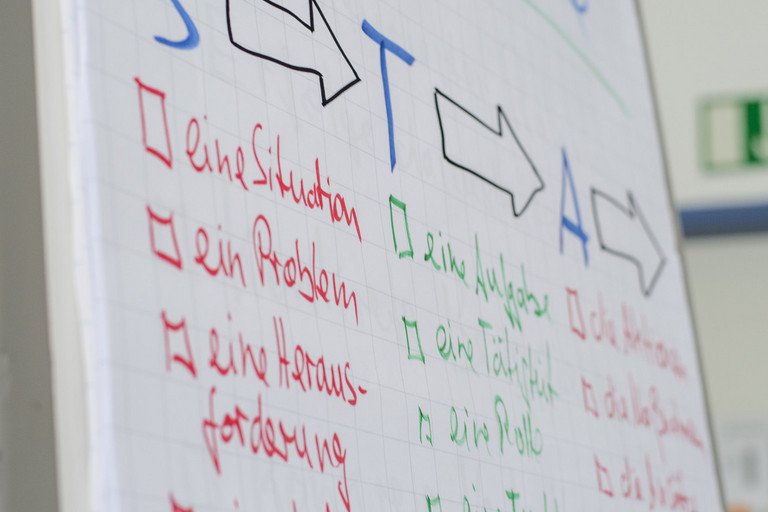 S
T
A
eine Situation
ein Problem
eine Heraus-
forderung
eine Aufgabe
eine Tätigkeit
eine Rolle
die Aktionen